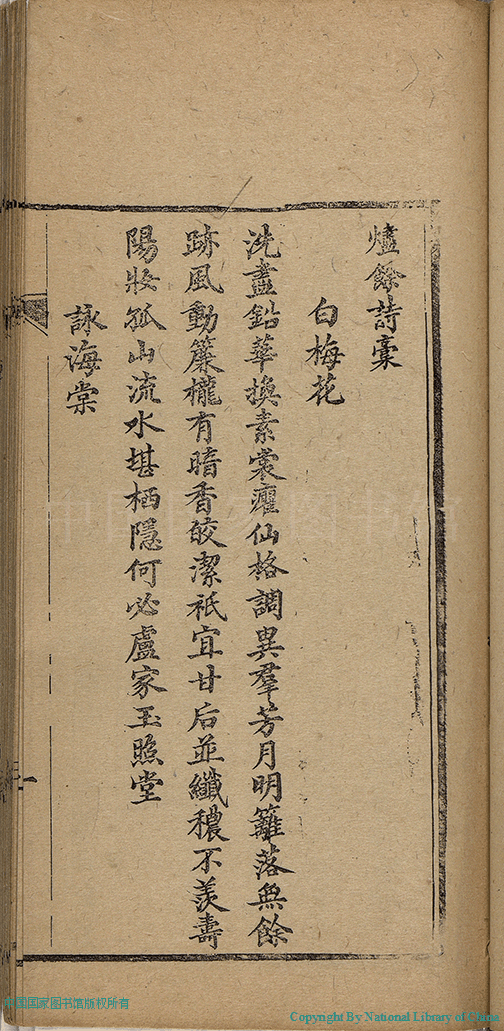 爐餘詩稾
白梅花
洗盡鉛華換素裳癯仙格調異羣芳月明籬落無餘
跡風動簾櫳有暗香皎潔祇宜甘后並纖穠不羨壽
陽妝孤山流水堪栖隱何必盧家玉照堂
詠海棠
中国国家图书馆版权所有
Copyright By National Library of China